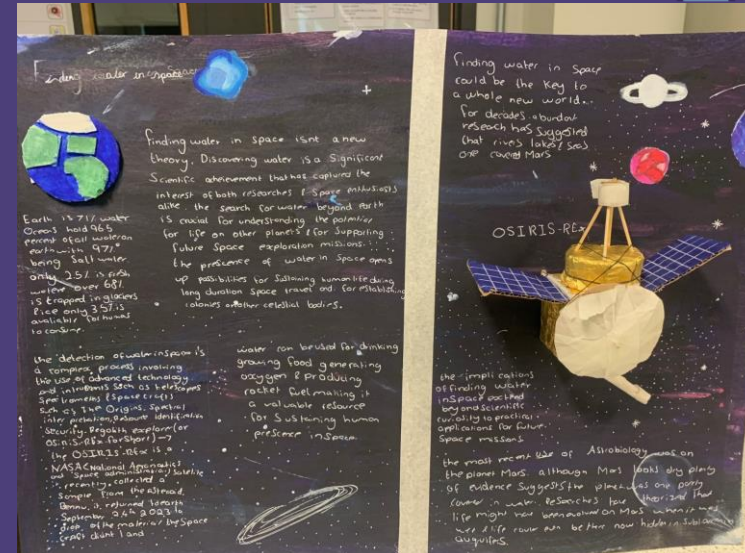 Finding water in space
finding water in space isnt a new
theory. Discovering water is a significant
Scientific acheievement that has captured the
interest of both researches & space enthusiasts
alike. the search for water beyond earth
is crucial for understanding the potential
for life on other planets & for supporting
future space exploration missions.
the presence of water in space opens
up possibilities for sustaining human life during
long duration space travel and for establishing
colonies on other celestial bodies.
Earth is 71% water
Oceans hold 96.5
percent of all water on
earth with 97%
being salt water
only 2.5% is fresh
water over 68%
is trapped in glaciers
& ice only 3.5% is
available for humans
to consume.
the detection of water in space is
a complex process involving
the use of advanced technology
and intruments such as telescopes
Spectrometers & Space crafts
such as The Origins, Spectral
interpretation, Resource identification
Security, Regolith explorer (or
OSIRIS-REx for short) →
the OSIRIS-REx is a
NASA (National Aeronautics
and Space administration) satelite
recently, collected a
sample from the asteroid
Bennu, it returned to earth
September 24th 2023 to
drop of the material the space
craft didnt land
water can be used for drinking
growing food generating
oxygen & producing
rocket fuel making it
a valuable resource
for sustaining human
prescence in space
finding water in space
could be the key to
a whole new world..
for decades aburdant
reseach has suggested
that rivers lakes & seas
one covered Mars
OSIRIS-REx
the implications
of finding water
in space extend
beyond scientific
curiosity to practical
applications for future
space missions
the most recent of Astrobiology was on
the planet Mars. although Mars looks dry plenty
of evidence suggests the planet was one
cover in water. Researches have theorized that
life might have been on Mars when it was
wet & life could even be there now hidden in